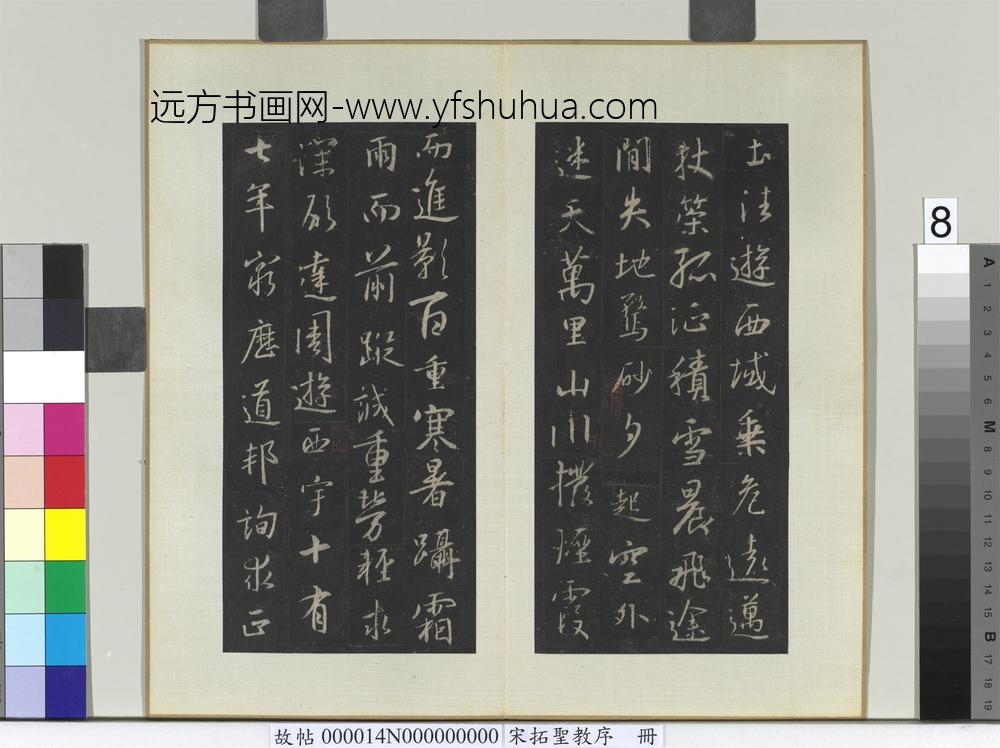 远方书画网-www.yfshuhua.com
土往遊西域乗危遠邁
杖策孤征積雪晨飛途
間失地驚砂夕起空外
迷天萬里山川撥煙霞
而進影百重寒暑躡霜
雨而前蹤誠重勞輕求
深願達周遊西宇十有
七年窮歷道邦詢求正
8
A
1
2
3
4
5
6
M
8
9
10
11
12
13
14
15
B
17
18
19
故帖 000014N000000000 宋拓聖教序 冊